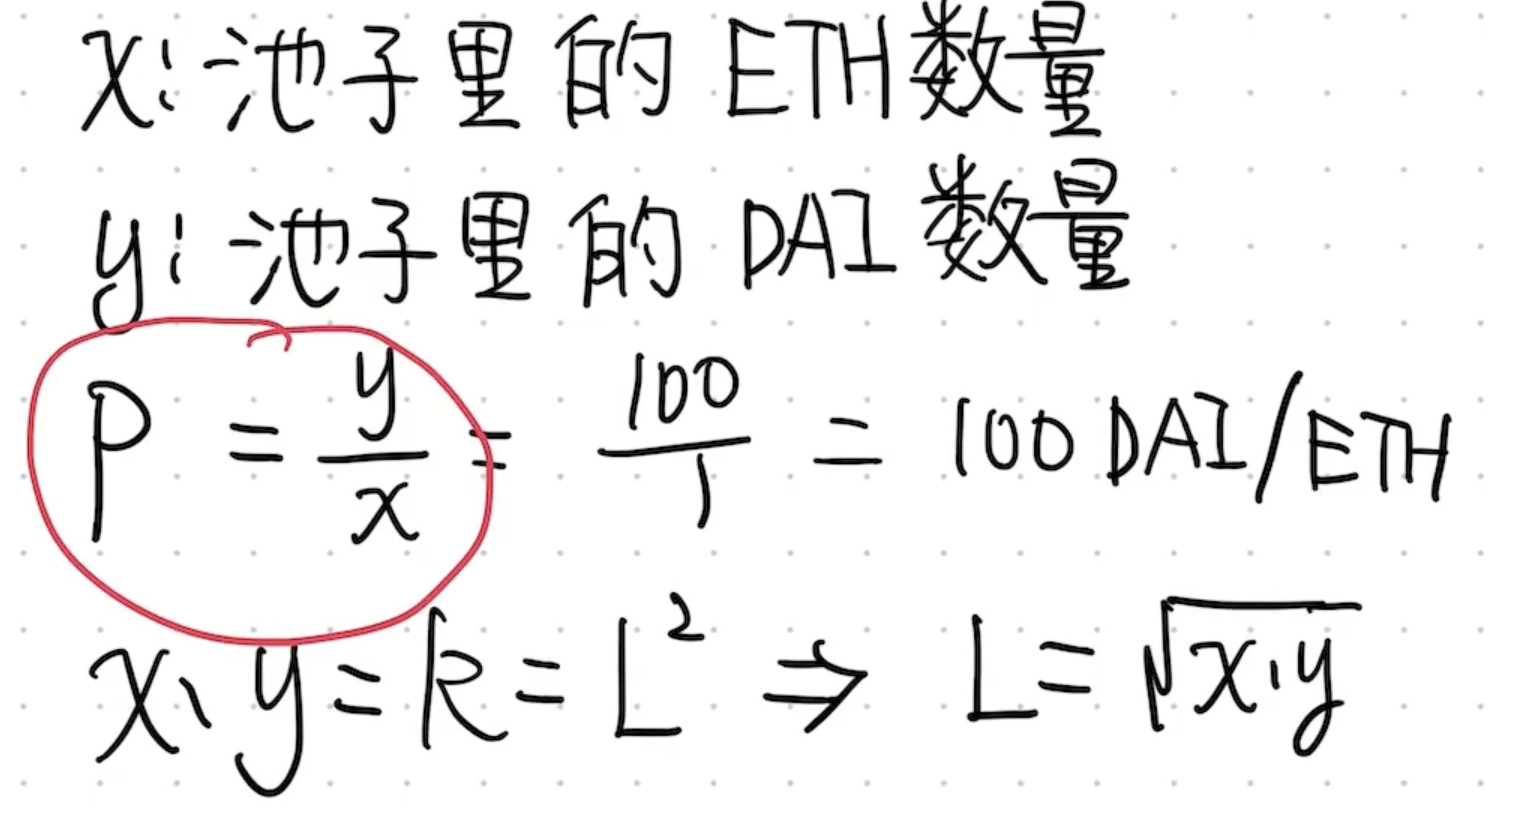 x: 池子里的 ETH数量
y: 池子里的 DAI 数量
P = y/x = 100/1 = 100 DAI/ETH
x·y = k = L² ⇒ L = √x·y